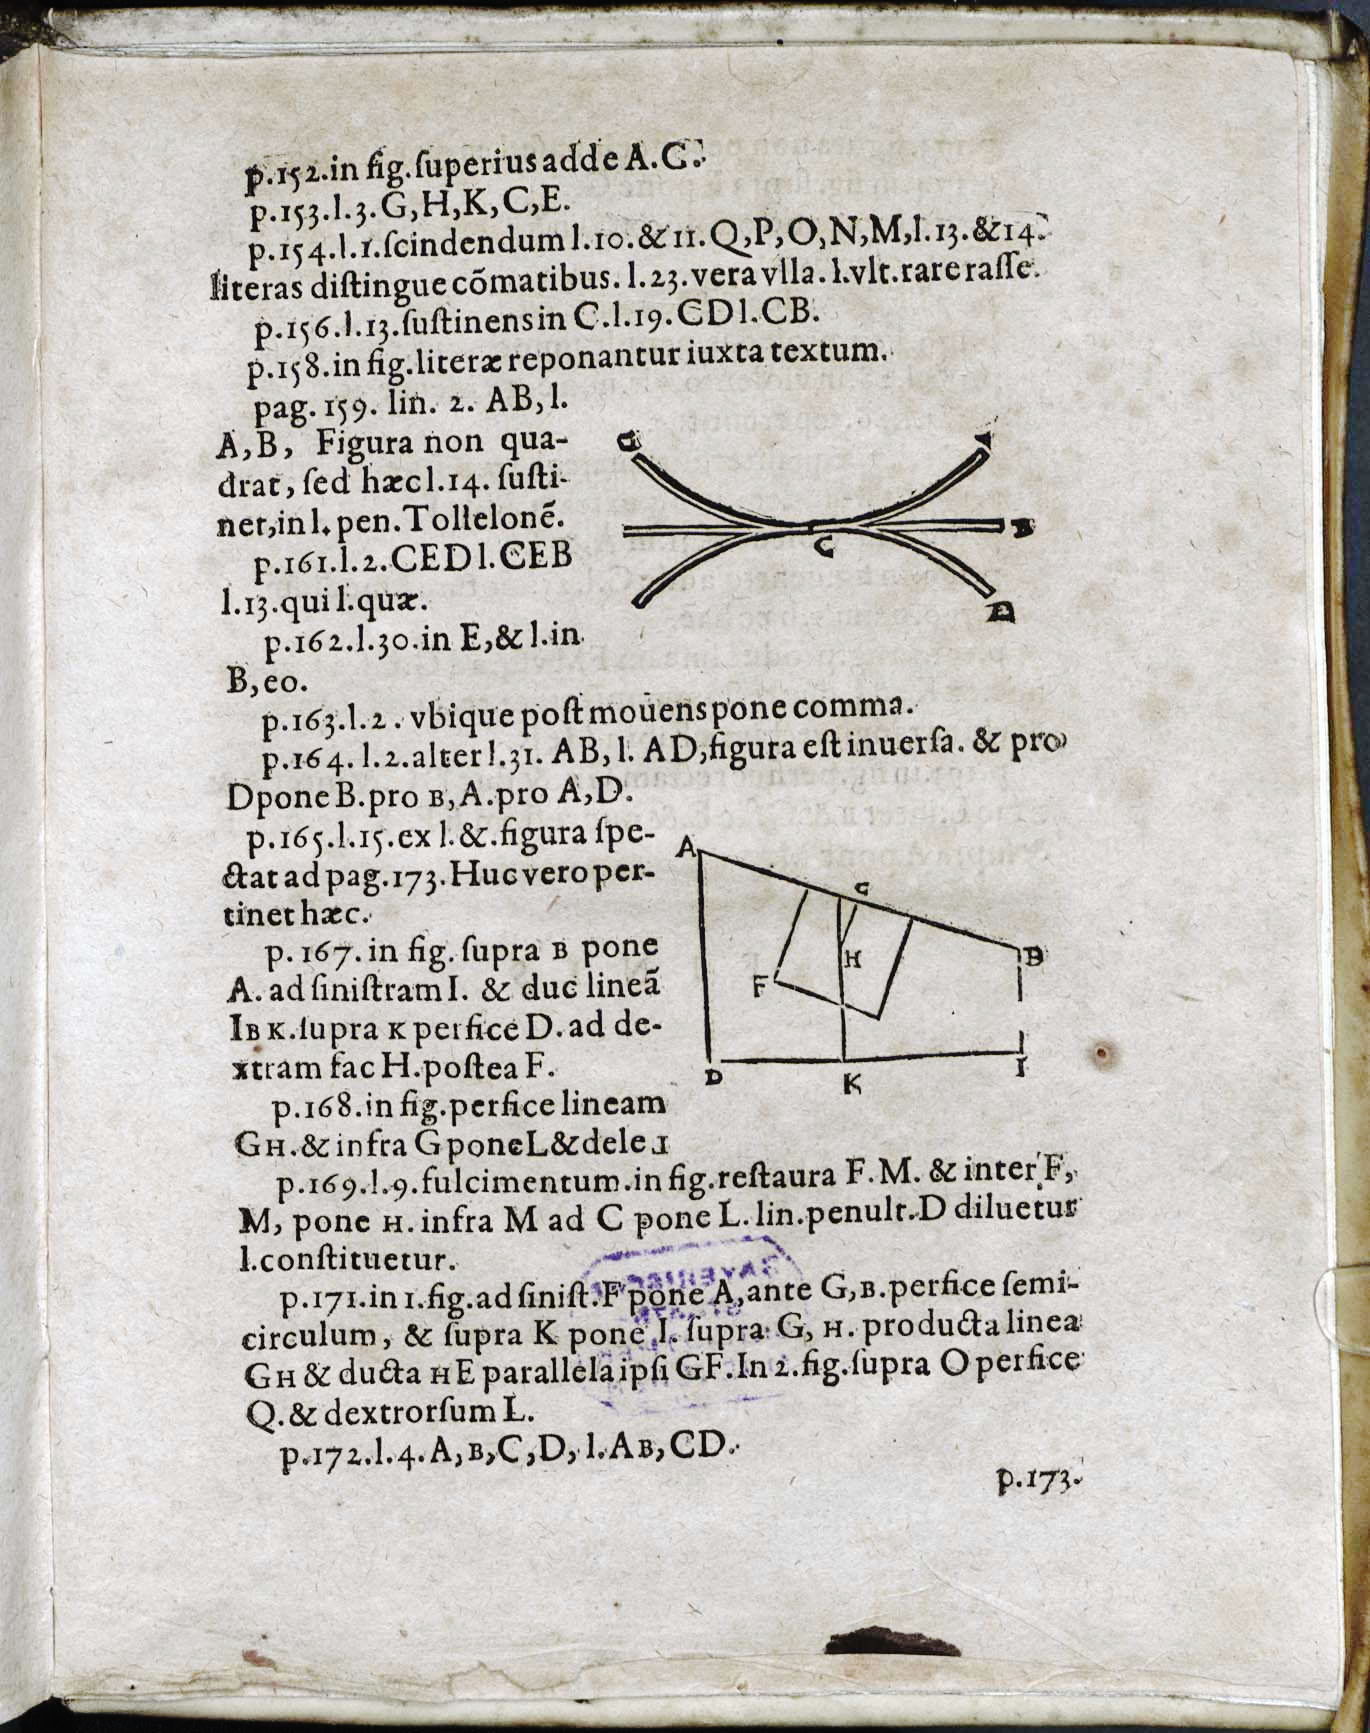 p.152.in fig.ſuperius adde A.C.
p.153.l.3.G,H,K,C,E.
p.154.l.1.ſcindendum l.10.&11.Q,P,O,N,M,l.13.&14.
literas diſtingue cõmatibus. l.23.vera vlla.l.vlt.rare raſſe.
p.156.l.13.ſuſtinens in C.l.19.CD l.CB.
p.158.in fig.literæ reponantur iuxta textum.
pag. 159. lin. 2. AB, l.
A,B, Figura non qua-
drat, ſed hæc l.14. ſuſti-
net,in l.pen.Tollelonẽ.
p.161.l.2.CED l.CEB
l.13.qui l.quæ.
p.162.l.30.in E,& l.in
B,eo.
A
B
C
D
p.163.l.2. vbique poſt mouens pone comma.
p.164. l.2.alter l.31. AB, l. AD,figura eſt inuerſa. & pro
D pone B.pro B,A.pro A,D.
p.165.l.15.ex l.&.figura ſpe-
ctat ad pag.173.Huc vero per-
tinet hæc.
p.167. in fig. ſupra B pone
A. ad ſiniſtram I. & duc lineã
IBK.ſupra K perfice D. ad de-
xtram fac H.poſtea F.
p.168.in fig.perfice lineam
GH.& infra G pone L & dele I
A
G
B
H
F
D
K
I
p.169.l.9.fulcimentum.in fig.reſtaura F.M. & inter F,
M, pone H. infra M ad C pone L. lin.penult.D diluetur
l.conſtituetur.
p.171.in 1.fig.ad ſiniſt.F pone A,ante G,B.perfice ſemi-
circulum, & ſupra K pone I. ſupra G, H. producta linea
GH & ducta HE parallela ipſi GF.In 2.fig.ſupra O perfice
Q.& dextrorſum L.
p.172.l.4.A,B,C,D, l.AB,CD.
p.173.